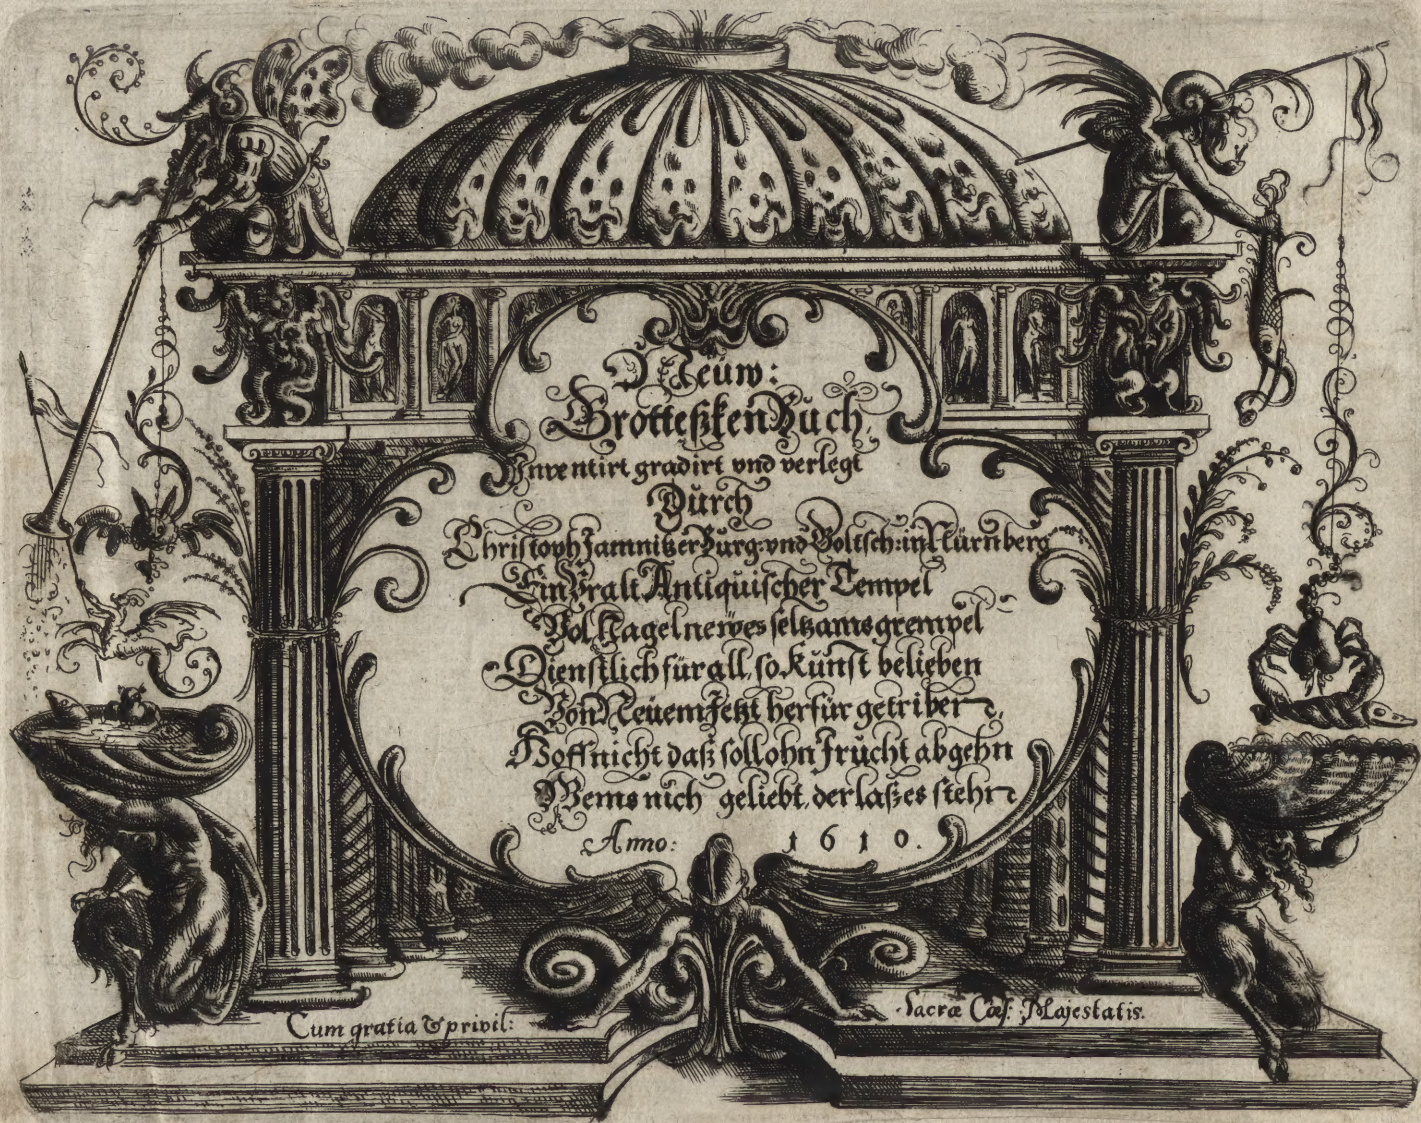 Neüw:
Grotteßken Büch,
Inventirt gradirt vnd verlegt
Dürch
Christoph Jamnitzer Burg: vnd Goltsch: in Nürnberg
Ein Vralt Antiquischer Tempel
Vol Nagelnewes seltzams grempel
Dienstlich für all, so Kunst belieben
Von Neüem Jetzt herfür getriben,
Hoff nicht daß soll ohn Frücht abgehn
Wems nich geliebt, der laß es stehn
Anno: 1610.
Cum gratia & privil:
Sacræ Cæs: Majestatis.